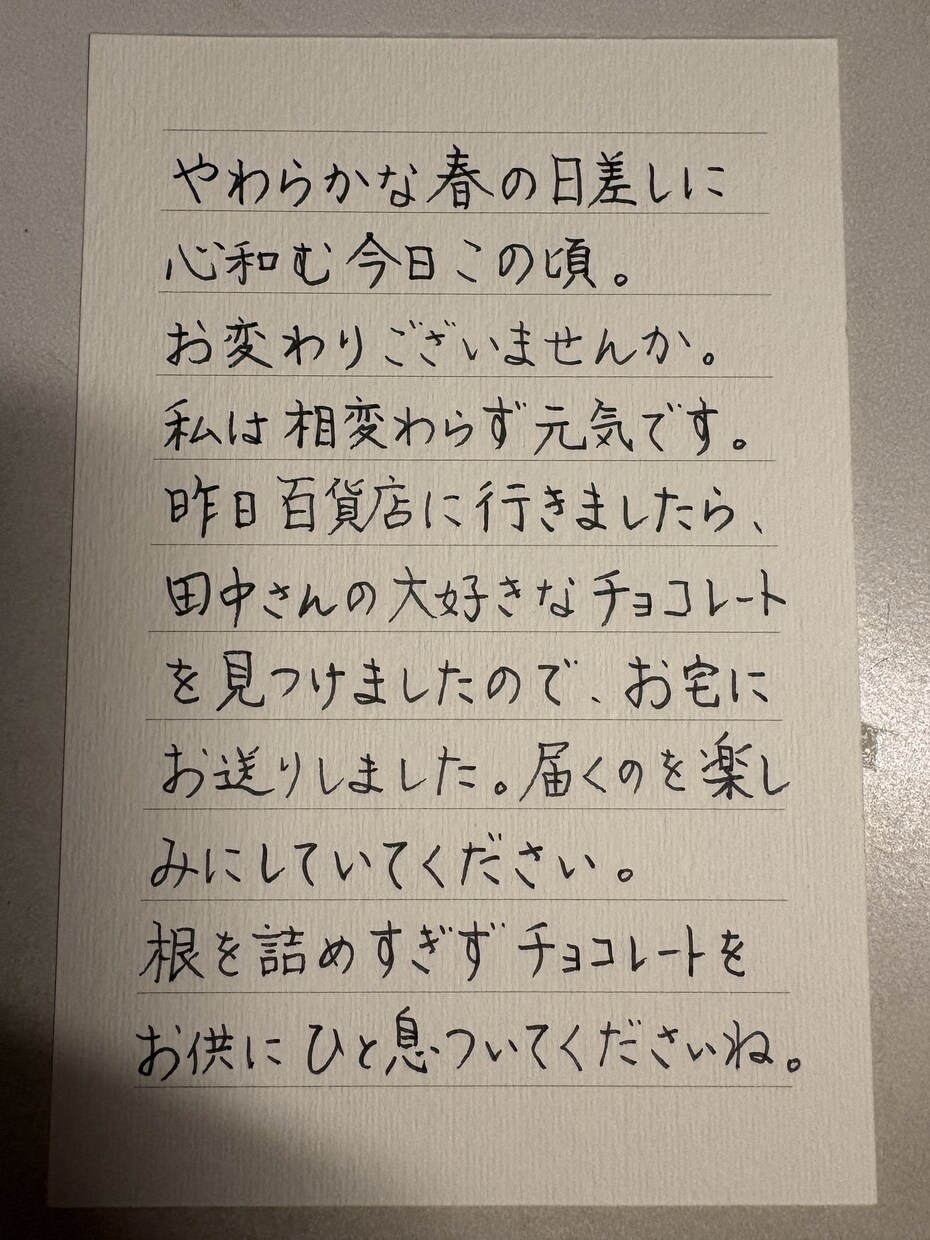 やわらかな春の日差しに
心和む今日この頃。
お変わりございませんか。
私は相変わらず元気です。
昨日百貨店に行きましたら、
田中さんの大好きなチョコレート
を見つけましたので、お宅に
お送りしました。届くのを楽し
みにしていてください。
根を詰めすぎずチョコレートを
お供にひと息ついてくださいね。